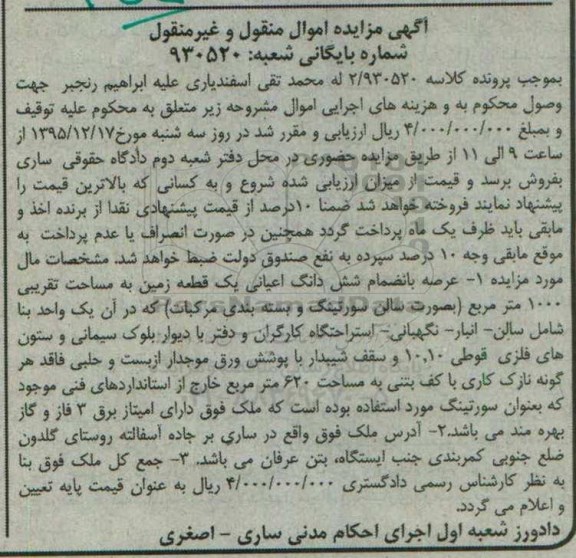 آگهی مزایده اموال منقول و غیرمنقول
شماره بایگانی شعبه: ۹۳۰۵۲۰
بموجب پرونده کلاسه ۲/۹۳۰۵۲۰ له محمد تقی اسفندیاری علیه ابراهیم رنجبر جهت
وصول محکوم به و هزینه های اجرایی اموال مشروحه زیر متعلق به محکوم علیه توقیف
و بمبلغ ۴/۰۰۰/۰۰۰/۰۰۰ ریال ارزیابی و مقرر شد در روز سه شنبه مورخ۱۳۹۵/۱۲/۱۷ از
ساعت ۹ الی ۱۱ از طریق مزایده حضوری در محل دفتر شعبه دوم دادگاه حقوقی ساری
بفروش برسد و قیمت از میزان ارزیابی شده شروع و به کسانی که بالاترین قیمت را
پیشنهاد نمایند فروخته خواهد شد ضمنا ۱۰درصد از قیمت پیشنهادی نقدا از برنده اخذ و
مابقی باید ظرف یک ماه پرداخت گردد همچنین در صورت انصراف یا عدم پرداخت به
موقع مابقی وجه ۱۰ درصد سپرده به نفع صندوق دولت ضبط خواهد شد. مشخصات مال
مورد مزایده ۱- عرصه بانضمام شش دانگ اعیانی یک قطعه زمین به مساحت تقریبی
۱۰۰۰ متر مربع (بصورت سالن سورتینگ و بسته بندی مرکبات) که در آن یک واحد بنا
شامل سالن- انبار- نگهبانی- استراحتگاه کارگران و دفتر با دیوار بلوک سیمانی و ستون
های فلزی قوطی ۱۰.۱۰ و سقف شیبدار با پوشش ورق موجدار ازبست و حلبی فاقد هر
گونه نازک کاری با کف بتنی به مساحت ۶۲۰ متر مربع خارج از استانداردهای فنی موجود
که بعنوان سورتینگ مورد استفاده بوده است که ملک فوق دارای امتیاز برق ۳ فاز و گاز
بهره مند می باشد.۲- آدرس ملک فوق واقع در ساری بر جاده آسفالته روستای گلدون
ضلع جنوبی کمربندی جنب ایستگاه، بتن عرفان می باشد. ۳- جمع کل ملک فوق بنا
به نظر کارشناس رسمی دادگستری ۴/۰۰۰/۰۰۰/۰۰۰ ریال به عنوان قیمت پایه تعیین
و اعلام می گردد.
دادورز شعبه اول اجرای احکام مدنی ساری - اصغری